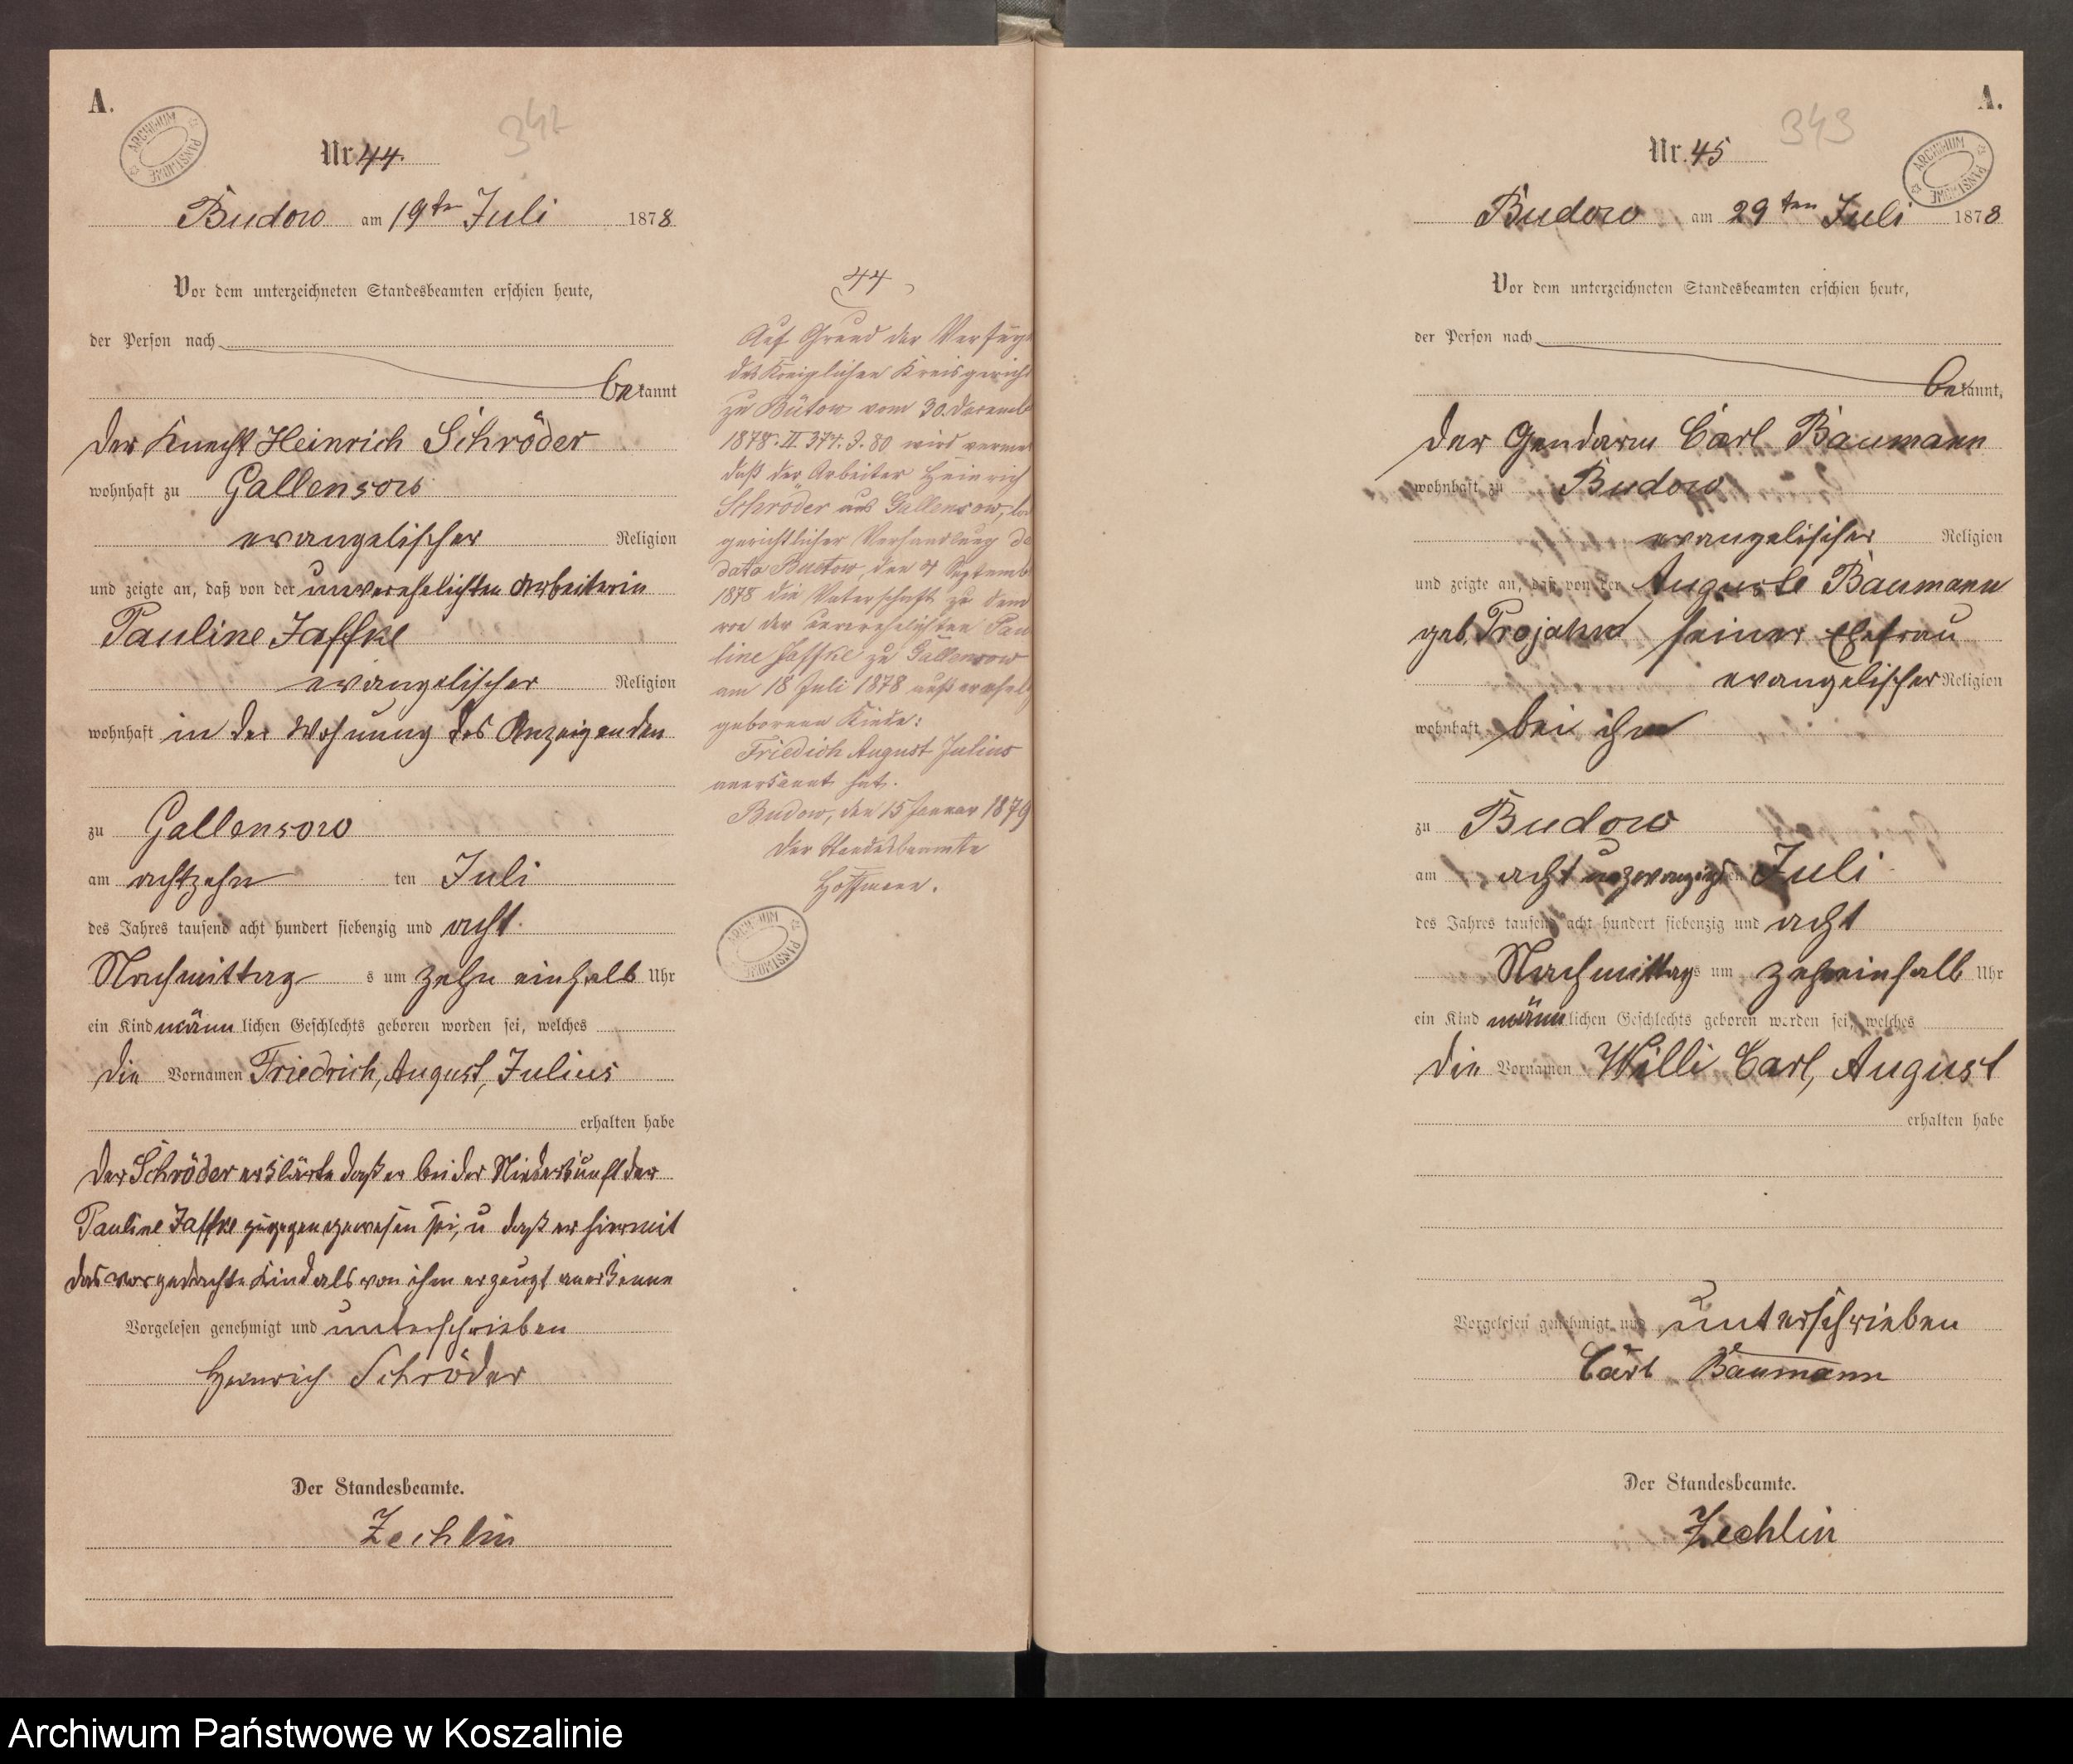 A.
ARCHIWUM PAŃSTWOWE
342
Nr. 44.
Budow am 19ten Juli 1878
Vor dem unterzeichneten Standesbeamten erschien heute,
der Person nach
bekannt
der Knecht Heinrich Schröder
wohnhaft zu Gallensow
evangelischer Religion
und zeigte an, daß von der unverehelichten Arbeiterin
Pauline Jaffke
evangelischer Religion
wohnhaft in der Wohnung des Anzeigenden
zu Gallensow
am achtzehn ten Juli
des Jahres tausend acht hundert siebenzig und acht
Nachmittag s um zehn einhalb Uhr
ein Kind männ lichen Geschlechts geboren worden sei, welches
die Vornamen Friedrich, August, Julius
erhalten habe
Der Schröder erklärte daß er bei der Niederkunft der
Pauline Jaffke zugegen gewesen sei, u daß er hiermit
das vorgedachte Kind als von ihm erzeugt anerkenne
Vorgelesen genehmigt und unterschrieben
Heinrich Schröder
Der Standesbeamte.
Zechlin
44
Auf Grund der Verfüg
des Königlichen Kreisgericht
zu Bütow vom 30. Decemb
1878. II 377. J. 80 wird verme
daß der Arbeiter Heinrich
Schröder aus Gallensow,
gerichtlicher Verhandlung de
dato Buetow, den 9 Septemb
1878 die Vaterschaft zu dem
von der unverehelichten Pau
line Jaffke zu Gallensow
am 18 Juli 1878 außerehel
geborenen Kinde:
Friedich August Julius
anerkannt hat.
Budow, den 15 Januar 1879
Der Standesbeamte
Hoffmann.
ARCHIWUM PAŃSTWOWE
A.
343
ARCHIWUM PAŃSTWOWE
Nr. 45
Budow am 29ten Juli 1878
Vor dem unterzeichneten Standesbeamten erschien heute,
der Person nach
bekannt,
der Gendarm Carl Baumann
wohnhaft zu Budow
evangelischer Religion
und zeigte an, daß von der Auguste Baumann
geb. Projahn seiner Ehefrau
evangelischer Religion
wohnhaft bei ihm
zu Budow
am acht undzwanzig ten Juli
des Jahres tausend acht hundert siebenzig und acht
Nachmittag s um zehneinhalb Uhr
ein Kind männ lichen Geschlechts geboren worden sei, welches
die Vornamen Willi Carl, August
erhalten habe
Vorgelesen genehmigt und unterschrieben
Carl Baumann
Der Standesbeamte.
Zechlin
Archiwum Państwowe w Koszalinie